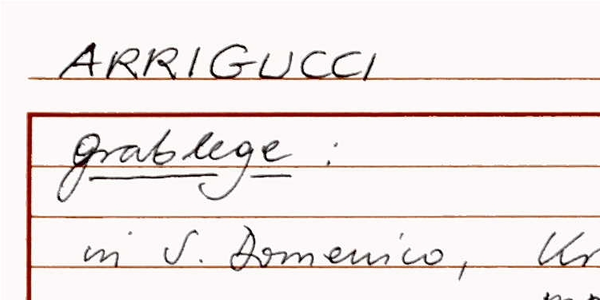 ARRIGUCCI
Grablege :
in S. Domenico, Kr